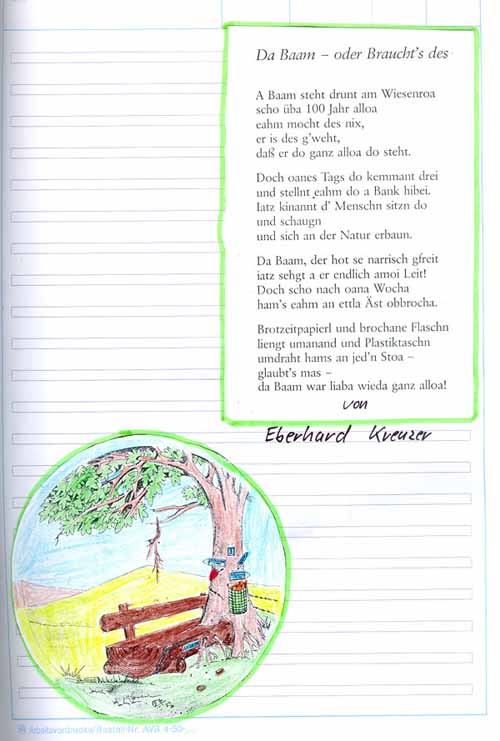 Da Baam – oder Braucht's des
A Baam steht drunt am Wiesenroa
scho üba 100 Jahr alloa
eahm mocht des nix,
er is des g'weht,
daß er do ganz alloa do steht.
Doch oanes Tags do kemmant drei
und stellnt eahm do a Bank hibei.
Iatz kinannt d' Menschn sitzn do
und schaugn
und sich an der Natur erbaun.
Da Baam, der hot se narrisch gfreit
iatz sehgt a er endlich amoi Leit!
Doch scho nach oana Wocha
ham's eahm an ettla Äst obbrocha.
Brotzeitpapierl und brochane Flaschn
liengt umanand und Plastiktaschn
umdraht hams an jed'n Stoa –
glaubt's mas –
da Baam war liaba wieda ganz alloa!
von
Eberhard Kreuzer